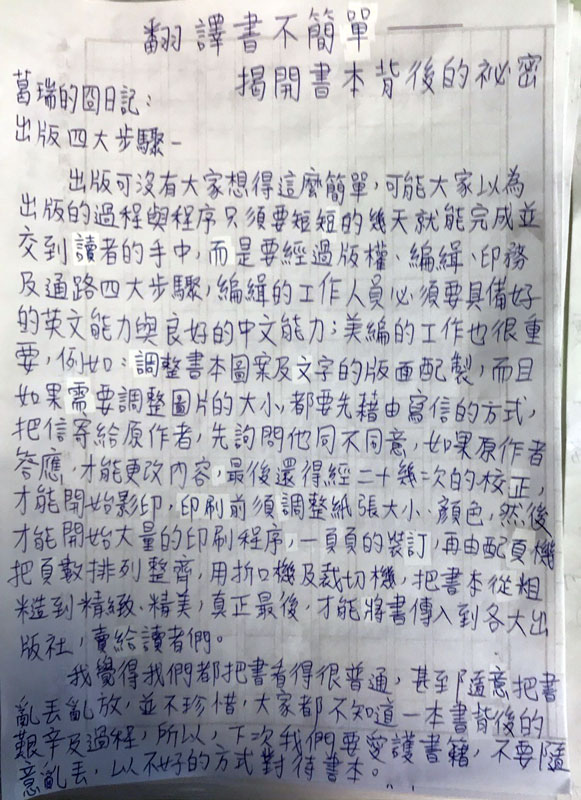 翻譯書不簡單
揭開書本背後的祕密
葛瑞的囧日記：
出版四大步驟—
出版可沒有大家想得這麼簡單，可能大家以為
出版的過程與程序只須要短短的幾天就能完成並
交到讀者的手中，而是要經過版權、編緝、印務
及通路四大步驟，編緝的工作人員必須要具備好
的英文能力與良好的中文能力；美編的工作也很重
要，例如：調整書本圖案及文字的版面配製，而且
如果需要調整圖片的大小，都要先藉由寫信的方式，
把信寄給原作者，先詢問他同不同意，如果原作者
答應，才能更改內容，最後還得經二十幾次的校正，
才能開始影印，印刷前須調整紙張大小、顏色，然後
才能開始大量的印刷程序，一頁頁的裝訂，再由配頁機
把頁數排列整齊，用折口機及裁切機，把書本從粗
糙到精緻、精美，真正最後，才能將書傳入到各大出
版社，賣給讀者們。
我覺得我們都把書看得很普通，甚至隨意把書
亂丟亂放，並不珍惜，大家都不知道一本書背後的
艱辛及過程，所以，下次我們要愛護書籍，不要隨
意亂丟，以不好的方式對待書本。